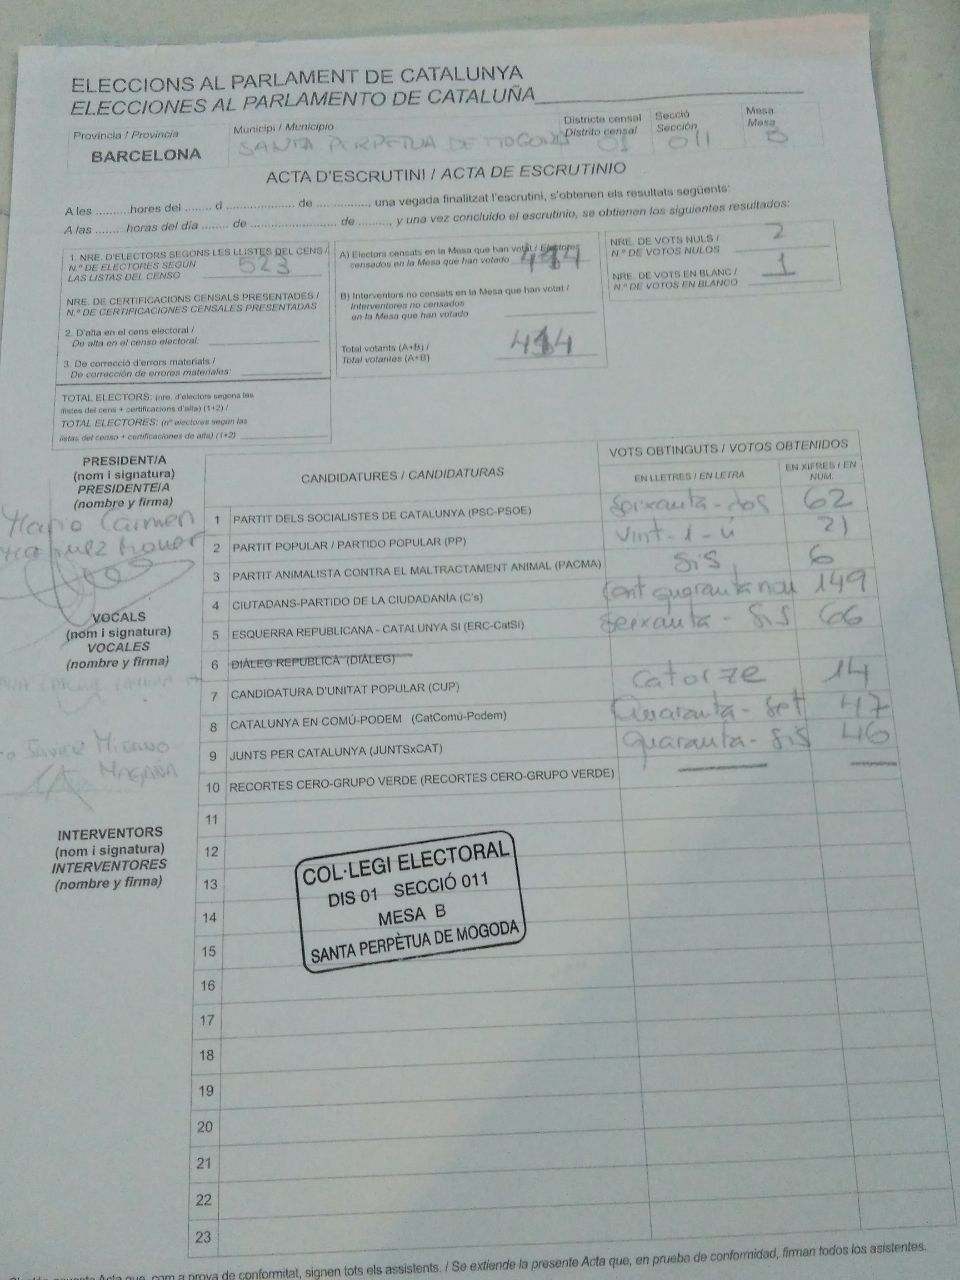 ELECCIONS AL PARLAMENT DE CATALUNYA
ELECCIONES AL PARLAMENTO DE CATALUÑA
Província / Provincia
BARCELONA
Municipi / Municipio
SANTA PERPETUA DE MOGODA
Districte censal
Distrito censal
01
Secció
Sección
011
Mesa
Mesa
B
ACTA D'ESCRUTINI / ACTA DE ESCRUTINIO
A les .........hores del ........ d .................... de ..............., una vegada finalitzat l'escrutini, s'obtenen els resultats següents:
A las ........ horas del día ........ de ......................... de .........., y una vez concluido el escrutinio, se obtienen los siguientes resultados:
1. NRE. D'ELECTORS SEGONS LES LLISTES DEL CENS /
N.º DE ELECTORES SEGÚN
LAS LISTAS DEL CENSO
523
NRE. DE CERTIFICACIONS CENSALS PRESENTADES /
N.º DE CERTIFICACIONES CENSALES PRESENTADAS
2. D'alta en el cens electoral /
De alta en el censo electoral:
3. De correcció d'errors materials /
De corrección de errores materiales:
TOTAL ELECTORS: (nre. d'electors segons las
llistes del cens + certificacions d'alta) (1+2) /
TOTAL ELECTORES: (nº electores según las
listas del censo + certificaciones de alta) (1+2)
A) Electors censats en la Mesa que han votat / Electores
censados en la Mesa que han votado 414
B) Interventors no censats en la Mesa que han votat /
Interventores no censados
en la Mesa que han votado
Total votants (A+B) /
Total votantes (A+B)
414
NRE. DE VOTS NULS /
N.º DE VOTOS NULOS
2
NRE. DE VOTS EN BLANC /
N.º DE VOTOS EN BLANCO
1
PRESIDENT/A
(nom i signatura)
PRESIDENTE/A
(nombre y firma)
Carmen
VOCALS
(nom i signatura)
VOCALES
(nombre y firma)
Javier
INTERVENTORS
(nom i signatura)
INTERVENTORES
(nombre y firma)
CANDIDATURES / CANDIDATURAS
VOTS OBTINGUTS / VOTOS OBTENIDOS
EN LLETRES / EN LETRA
EN XIFRES / EN NÚM.
1 PARTIT DELS SOCIALISTES DE CATALUNYA (PSC-PSOE) Seixanta-dos 62
2 PARTIT POPULAR / PARTIDO POPULAR (PP) Vint-i-ú 21
3 PARTIT ANIMALISTA CONTRA EL MALTRACTAMENT ANIMAL (PACMA) Sis 6
4 CIUTADANS-PARTIDO DE LA CIUDADANÍA (C's) Cent quaranta nou 149
5 ESQUERRA REPUBLICANA - CATALUNYA SI (ERC-CatSí) Seixanta-sis 66
6 DIÀLEG REPUBLICÀ (DIÀLEG)
7 CANDIDATURA D'UNITAT POPULAR (CUP) Catorze 14
8 CATALUNYA EN COMÚ-PODEM (CatComú-Podem) Quaranta-set 47
9 JUNTS PER CATALUNYA (JUNTSxCAT) Quaranta-sis 46
10 RECORTES CERO-GRUPO VERDE (RECORTES CERO-GRUPO VERDE)
11
12
13
14
15
16
17
18
19
20
21
22
23
COL·LEGI ELECTORAL
DIS 01 SECCIÓ 011
MESA B
SANTA PERPÈTUA DE MOGODA
com a prova de conformitat, signen tots els assistents. / Se extiende la presente Acta que, en prueba de conformidad, firman todos los asistentes.